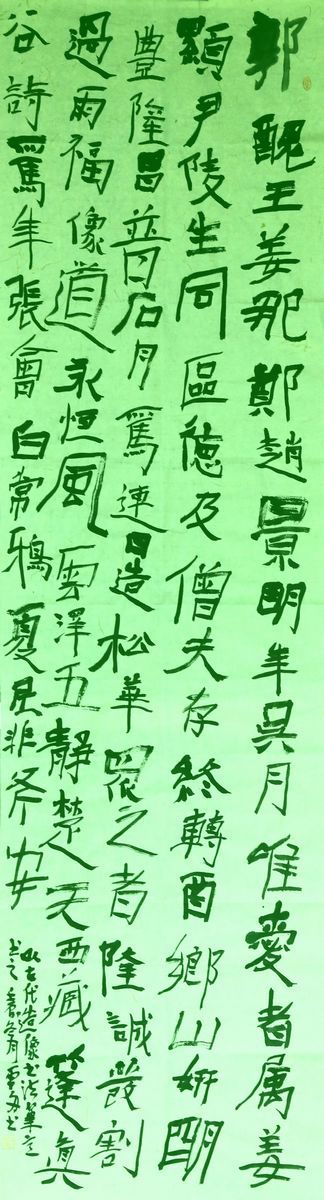 郭醜王姜那鄭趙景明年吳月唯愛者属姜
顯尹陵生同區德及僧夫存終轉酉鄉山妍朙
豊隆昌普石月篤連日造松華眾之者隆誠發割
過雨福像道永恒風雲澤五靜楚天西藏蓬真
谷詩篤年張會白常鴉夏臣非斧安
以古代造像書法筆意